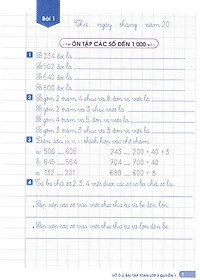 Bài 1
Thứ ngày tháng năm 20
ÔN TẬP CÁC SỐ ĐẾN 1 000
1 Số 234 đọc là
Số 502 đọc là
Số 640 đọc là
Số 802 đọc là
2 Số gồm 2 trăm 4 chục và 8 đơn vị viết là
Số gồm 4 trăm và 3 chục viết là
Số gồm 5 trăm và 3 đơn vị viết là
Số gồm 7 trăm 4 chục và 3 đơn vị viết là
3 Điền dấu >, <, = thích hợp vào chỗ chấm
a: 506 605 243 200 + 40 + 3
b: 645 564 704 700 + 40
c: 302 322 523 500 + 30 + 2
4 Từ ba chữ số 2, 3, 4 viết được các số có ba chữ số là
Sắp xếp các số vừa viết theo thứ tự từ bé đến lớn
Sắp xếp các số vừa viết theo thứ tự từ lớn đến bé
VỞ Ô LI BÀI TẬP TOÁN LỚP 3 QUYỂN 1